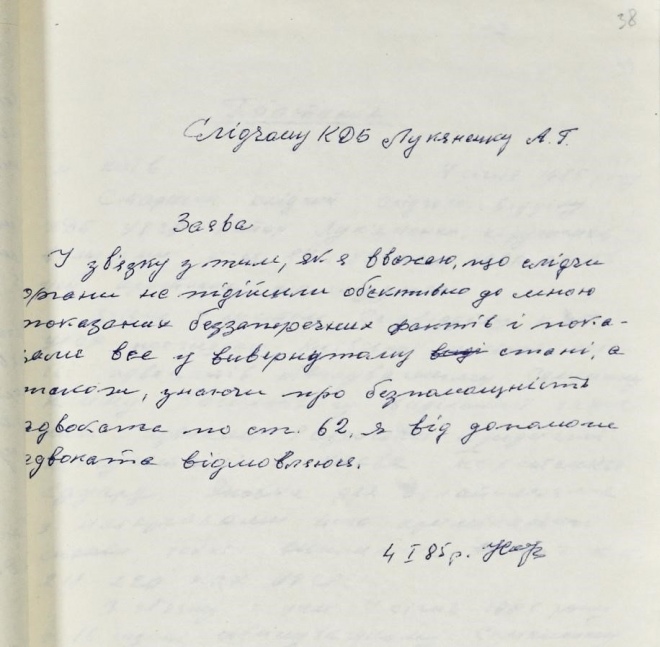 38
Слідчому КДБ Лукяненку А.Г.
Заява
У зв'язку з тим, як я вважаю, що слідчи
органи не підійшли обєктивно до мною
показаних беззаперечних фактів і пока-
зали все у вивернутому стані, а
також, знаючи про безпомощність
адвоката по ст. 62, я від допомоги
адвоката відмовляюся.
4 I 85р.